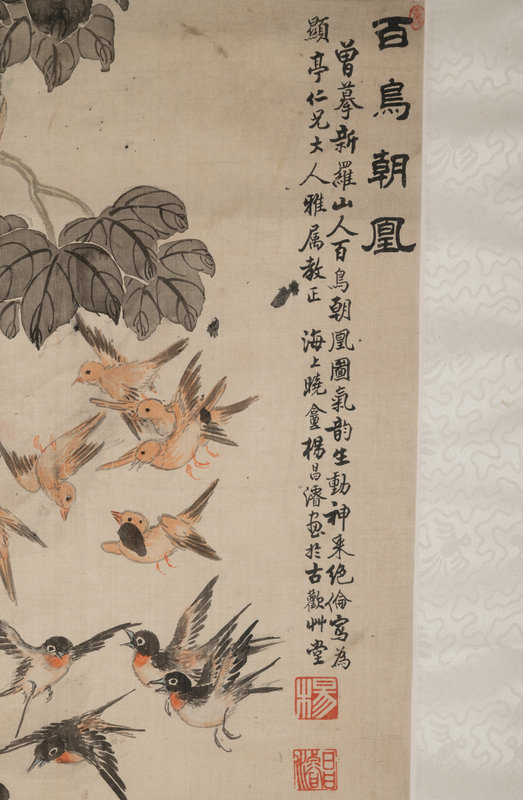 百鳥朝凰
曾摹新羅山人百鳥朝凰圖氣韵生動神采絕倫寫為
顯亭仁兄大人雅属教正 海上曉盦楊昌濬画於古歡艸堂
楊
昌濬